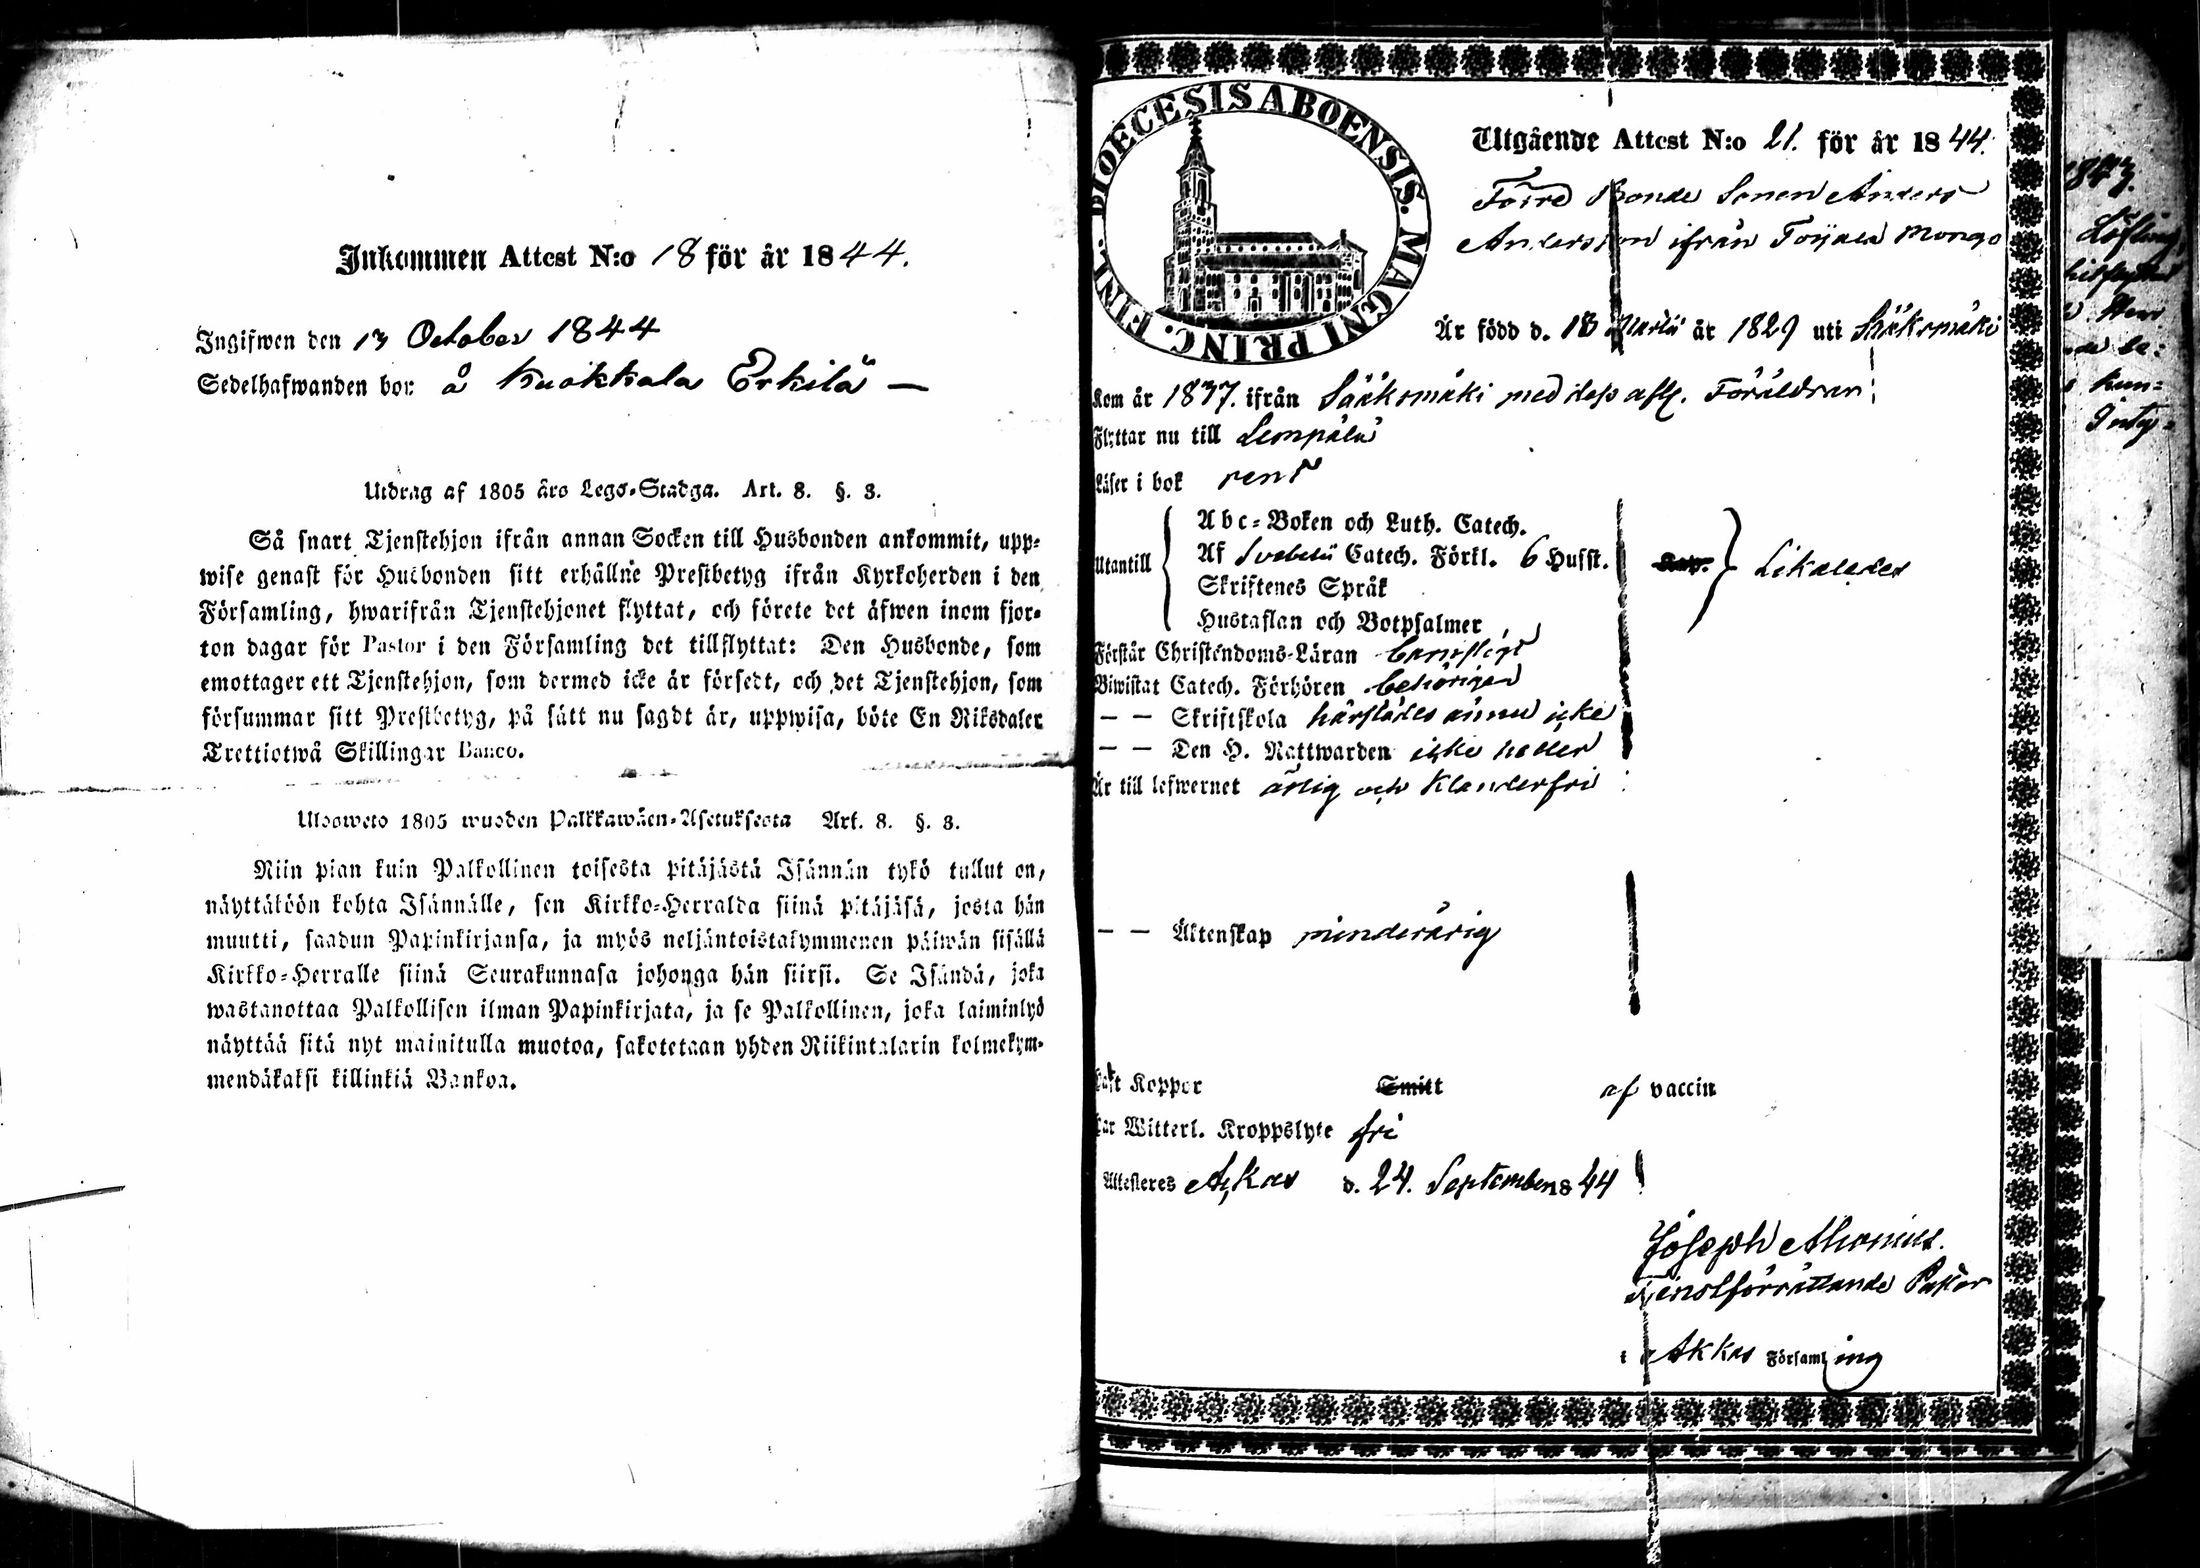 Inkommen Attest N:o 18 för år 1844.
Ingifwen den 13 October 1844
Sedelhafwanden bor å Kuokkala Erkilä —
Utdrag af 1805 års Lego-Stadga. Art. 8. §. 3.
Så snart Tjenstehjon ifrån annan Socken till Husbonden ankommit, upp-
wise genast för Husbonden sitt erhållne Prestbetyg ifrån Kyrkoherden i den
Församling, hwarifrån Tjenstehjonet flyttat, och förete det äfwen inom fjor-
ton dagar för Pastor i den Församling det tillflyttat: Den Husbonde, som
emottager ett Tjenstehjon, som dermed icke är försedt, och det Tjenstehjon, som
försummar sitt Prestbetyg, på sätt nu sagdt är, uppwisa, böte En Riksdaler
Trettiotwå Skillingar Banco.
Ulosweto 1805 wuoden Palkkawäen-Asetuksesta Art. 8. §. 3.
Niin pian kuin Palkollinen toisesta pitäjästä Isännän tykö tullut on,
näyttäköön kohta Isännälle, sen Kirkko-Herralda siinä pitäjäsä, josta hän
muutti, saadun Papinkirjansa, ja myös neljäntoistakymmenen päiwän sisällä
Kirkko-Herralle siinä Seurakunnasa johonga hän siirsi. Se Isändä, joka
wastanottaa Palkollisen ilman Papinkirjata, ja se Palkollinen, joka laiminlyö
näyttää sitä nyt mainitulla muotoa, sakotetaan yhden Riikintalarin kolmekym-
mendäkaksi killinkiä Bankoa.
DIOECESIS ABOENSIS. MAGNI PRINC. FINL.
Utgående Attest N:o 21. för år 1844.
Förre Bonde Sonen Anders
Andersson ifrån Toijala Mongo
Är född d. 18 Martii år 1829 uti Sääksmäki
Kom år 1837. ifrån Sääksmäki med dess afl. Föräldrar
Flyttar nu till Lempälä
Läser i bok rent
Utantill
Abc-Boken och Luth. Catech.
Af Svebelii Catech. Förkl. 6 Husst.
Skriftenes Språk
Hustaflan och Botpsalmer
Likaledes
Förstår Christendoms-Läran barnsligt
Biwistat Catech. Förhören behörigen
— — Skriftskola härstädes ännu icke
— — Den H. Nattwarden icke heller
Är till lefwernet ärlig och klanderfri
— — Äktenskap minderårig
Haft Koppor Smitt af vaccin
Har Witterl. Kroppslyte fri
Attesteres Akkas d. 24. September 1844
Joseph
Tjenstförrättande Pastor
i Akkas Församling
1843.